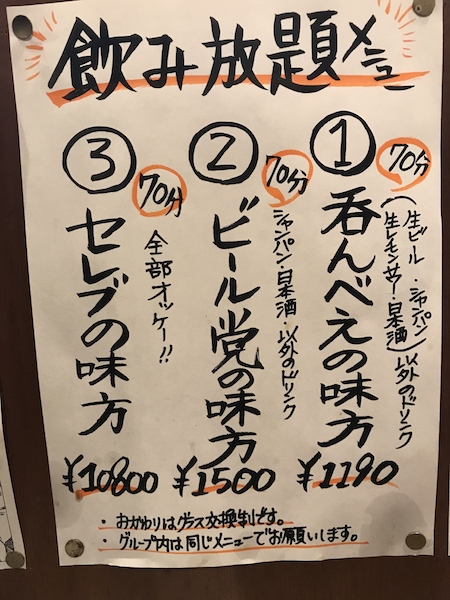 飲み放題メニュー
① 70分
呑んべえの味方
(生ビール・シャンパン
生レモンサワー・日本酒)以外のドリンク
¥1190
② 70分
ビール党の味方
シャンパン・日本酒・以外のドリンク
¥1500
③ 70分
セレブの味方
全部オッケー!!
¥10800
・おかわりはグラス交換制です。
・グループ内は同じメニューでお願いします。